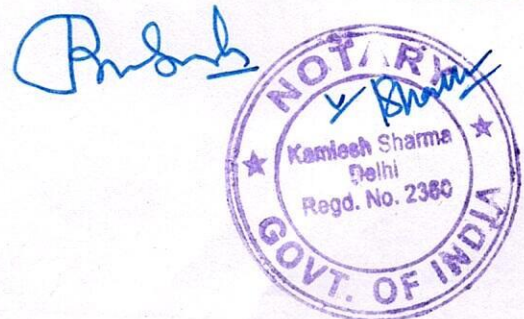 NOTARY
Kamlesh Sharma
Delhi
Regd. No. 2360
GOVT. OF INDIA